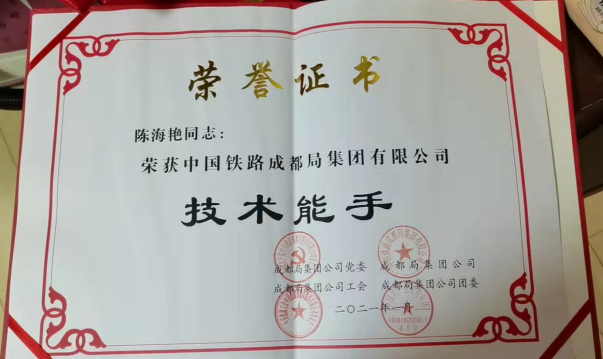 荣誉证书
陈海艳同志：
荣获中国铁路成都局集团有限公司
技术能手
成都局集团公司党委 成都局集团公司
成都局集团公司工会 成都局集团公司团委
二〇二一年一月